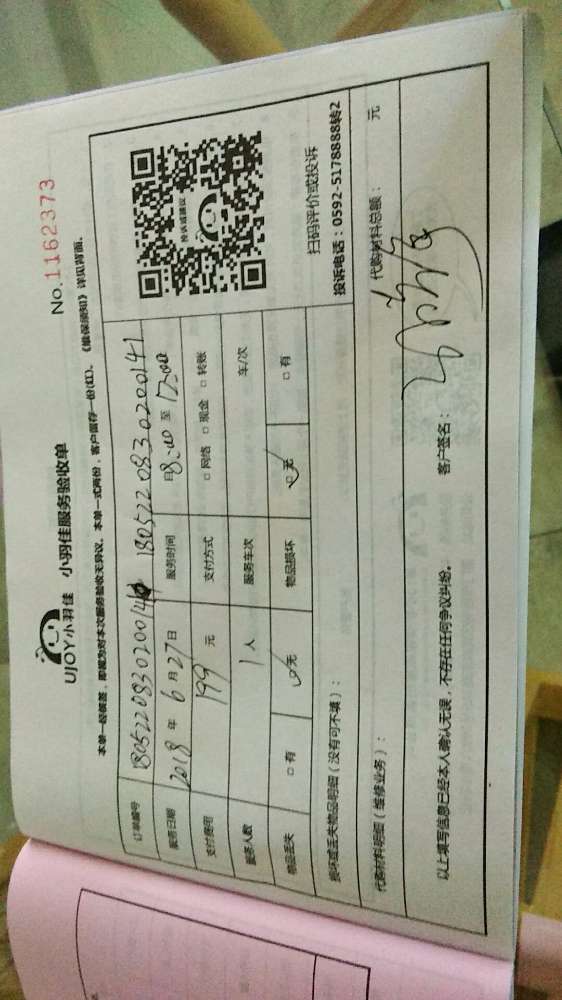 No.1162373
UJOY小羽佳 小羽佳服务验收单
本单一经核签，即视为对本次服务验收无异议。本单一式两份，客户留存一份(红)。《维保须知》详见背面。
订单编号 180522083020014 1805220830200141
服务日期 2018 年 6 月 27 日 服务时间 8:00 至 17:00
支付费用 199 元 支付方式 □ 网络 □ 现金 □ 转账
服务人数 1 人 服务车次 车/次
物品丢失 □ 有 ☑ 无 物品损坏 ☑ 无 □ 有
投诉或建议
扫码评价或投诉
投诉电话：0592-5178888转2
损坏或丢失物品明细（没有可不填）：
代购材料明细（维修业务）： 代购材料总额： 元
以上填写信息已经本人确认无误，不存在任何争议纠纷。 客户签名：